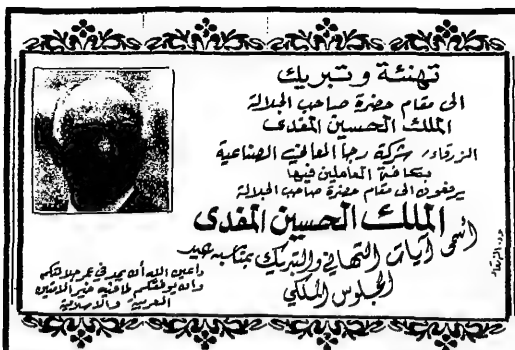 تهنئة وتبريك
الى مقام حضرة صاحب الجلالة
الملك الحسين المفدى
الزرقاء، شركة رجا المعالي الصناعية
بكافة العاملين فيها
يرفعون الى مقام حضرة صاحب الجلالة
الملك الحسين المفدى
اسمى آيات التهاني والتبريك بمناسبة عيد
الجلوس الملكي
داعين الله أن يمد في عمر جلالتكم
وان يوفقكم لما فيه خير الأمتين
العربية والاسلامية